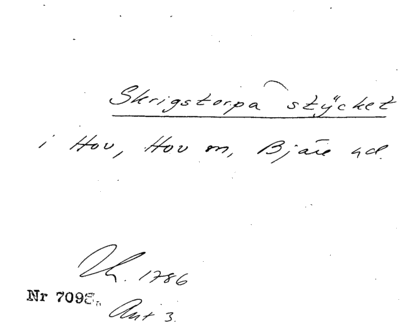 Skrigstorpa stycket
i Hov, Hov sn, Bjäre hd.
1786
Nr 7098
Akt 3.